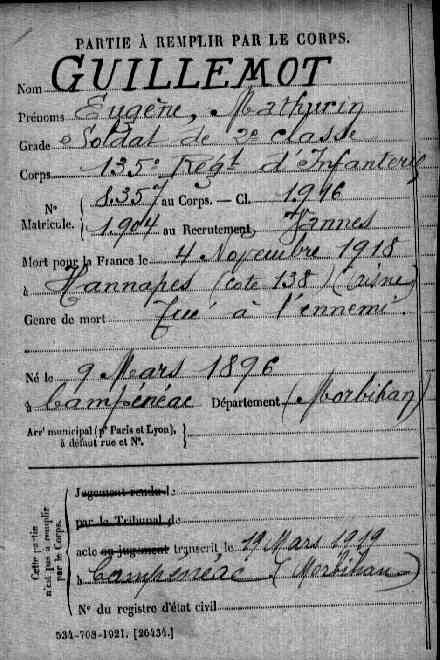 PARTIE À REMPLIR PAR LE CORPS.
Nom GUILLEMOT
Prénoms Eugène, Mathurin
Grade Soldat de 2e classe
Corps 135e Régt d'Infanterie
N° Matricule. { 8.357 au Corps. — Cl. 1.916
1.904 au Recrutement Vannes
Mort pour la France le 4 Novembre 1918
à Hannapes (cote 138) (Aisne)
Genre de mort Tué à l'ennemi.
Né le 9 Mars 1896
à Campénéac Département (Morbihan)
Arr' municipal (p' Paris et Lyon), à défaut rue et N°. }
Cette partie n'est pas à remplir par le Corps.
Jugement rendu le
par le Tribunal de
acte ou jugement transcrit le 19 Mars 1919
à Campénéac (Morbihan)
N° du registre d'état civil
534-708-1921. [26434.]